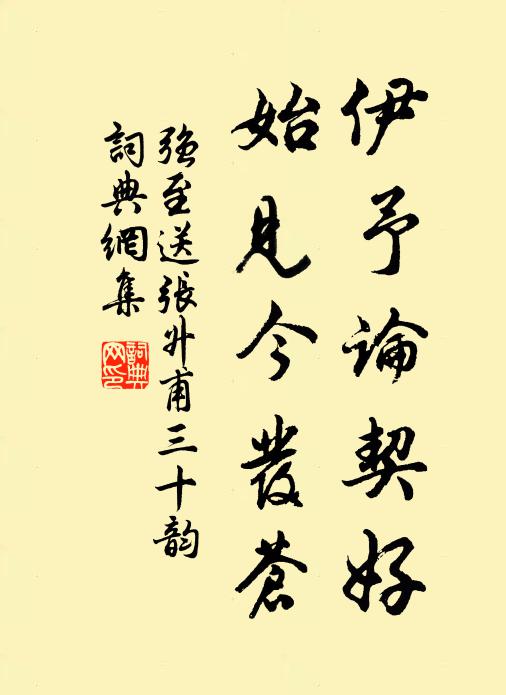 伊予論契好
始見今發蒼
強至送張升甫三十韵
詞典網集
詞典網印